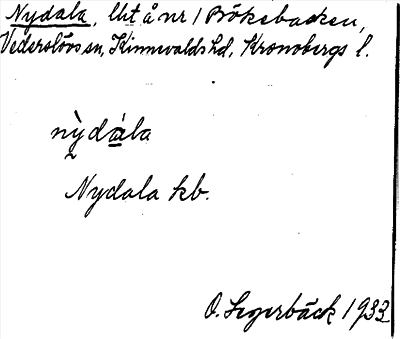 Nydala, lht å nr 1 Bökebacken,
Vederslövs sn, Kinnevalds hd, Kronobergs l.
nỳdàla
Nydala kb.
O. Segerbäck 1933